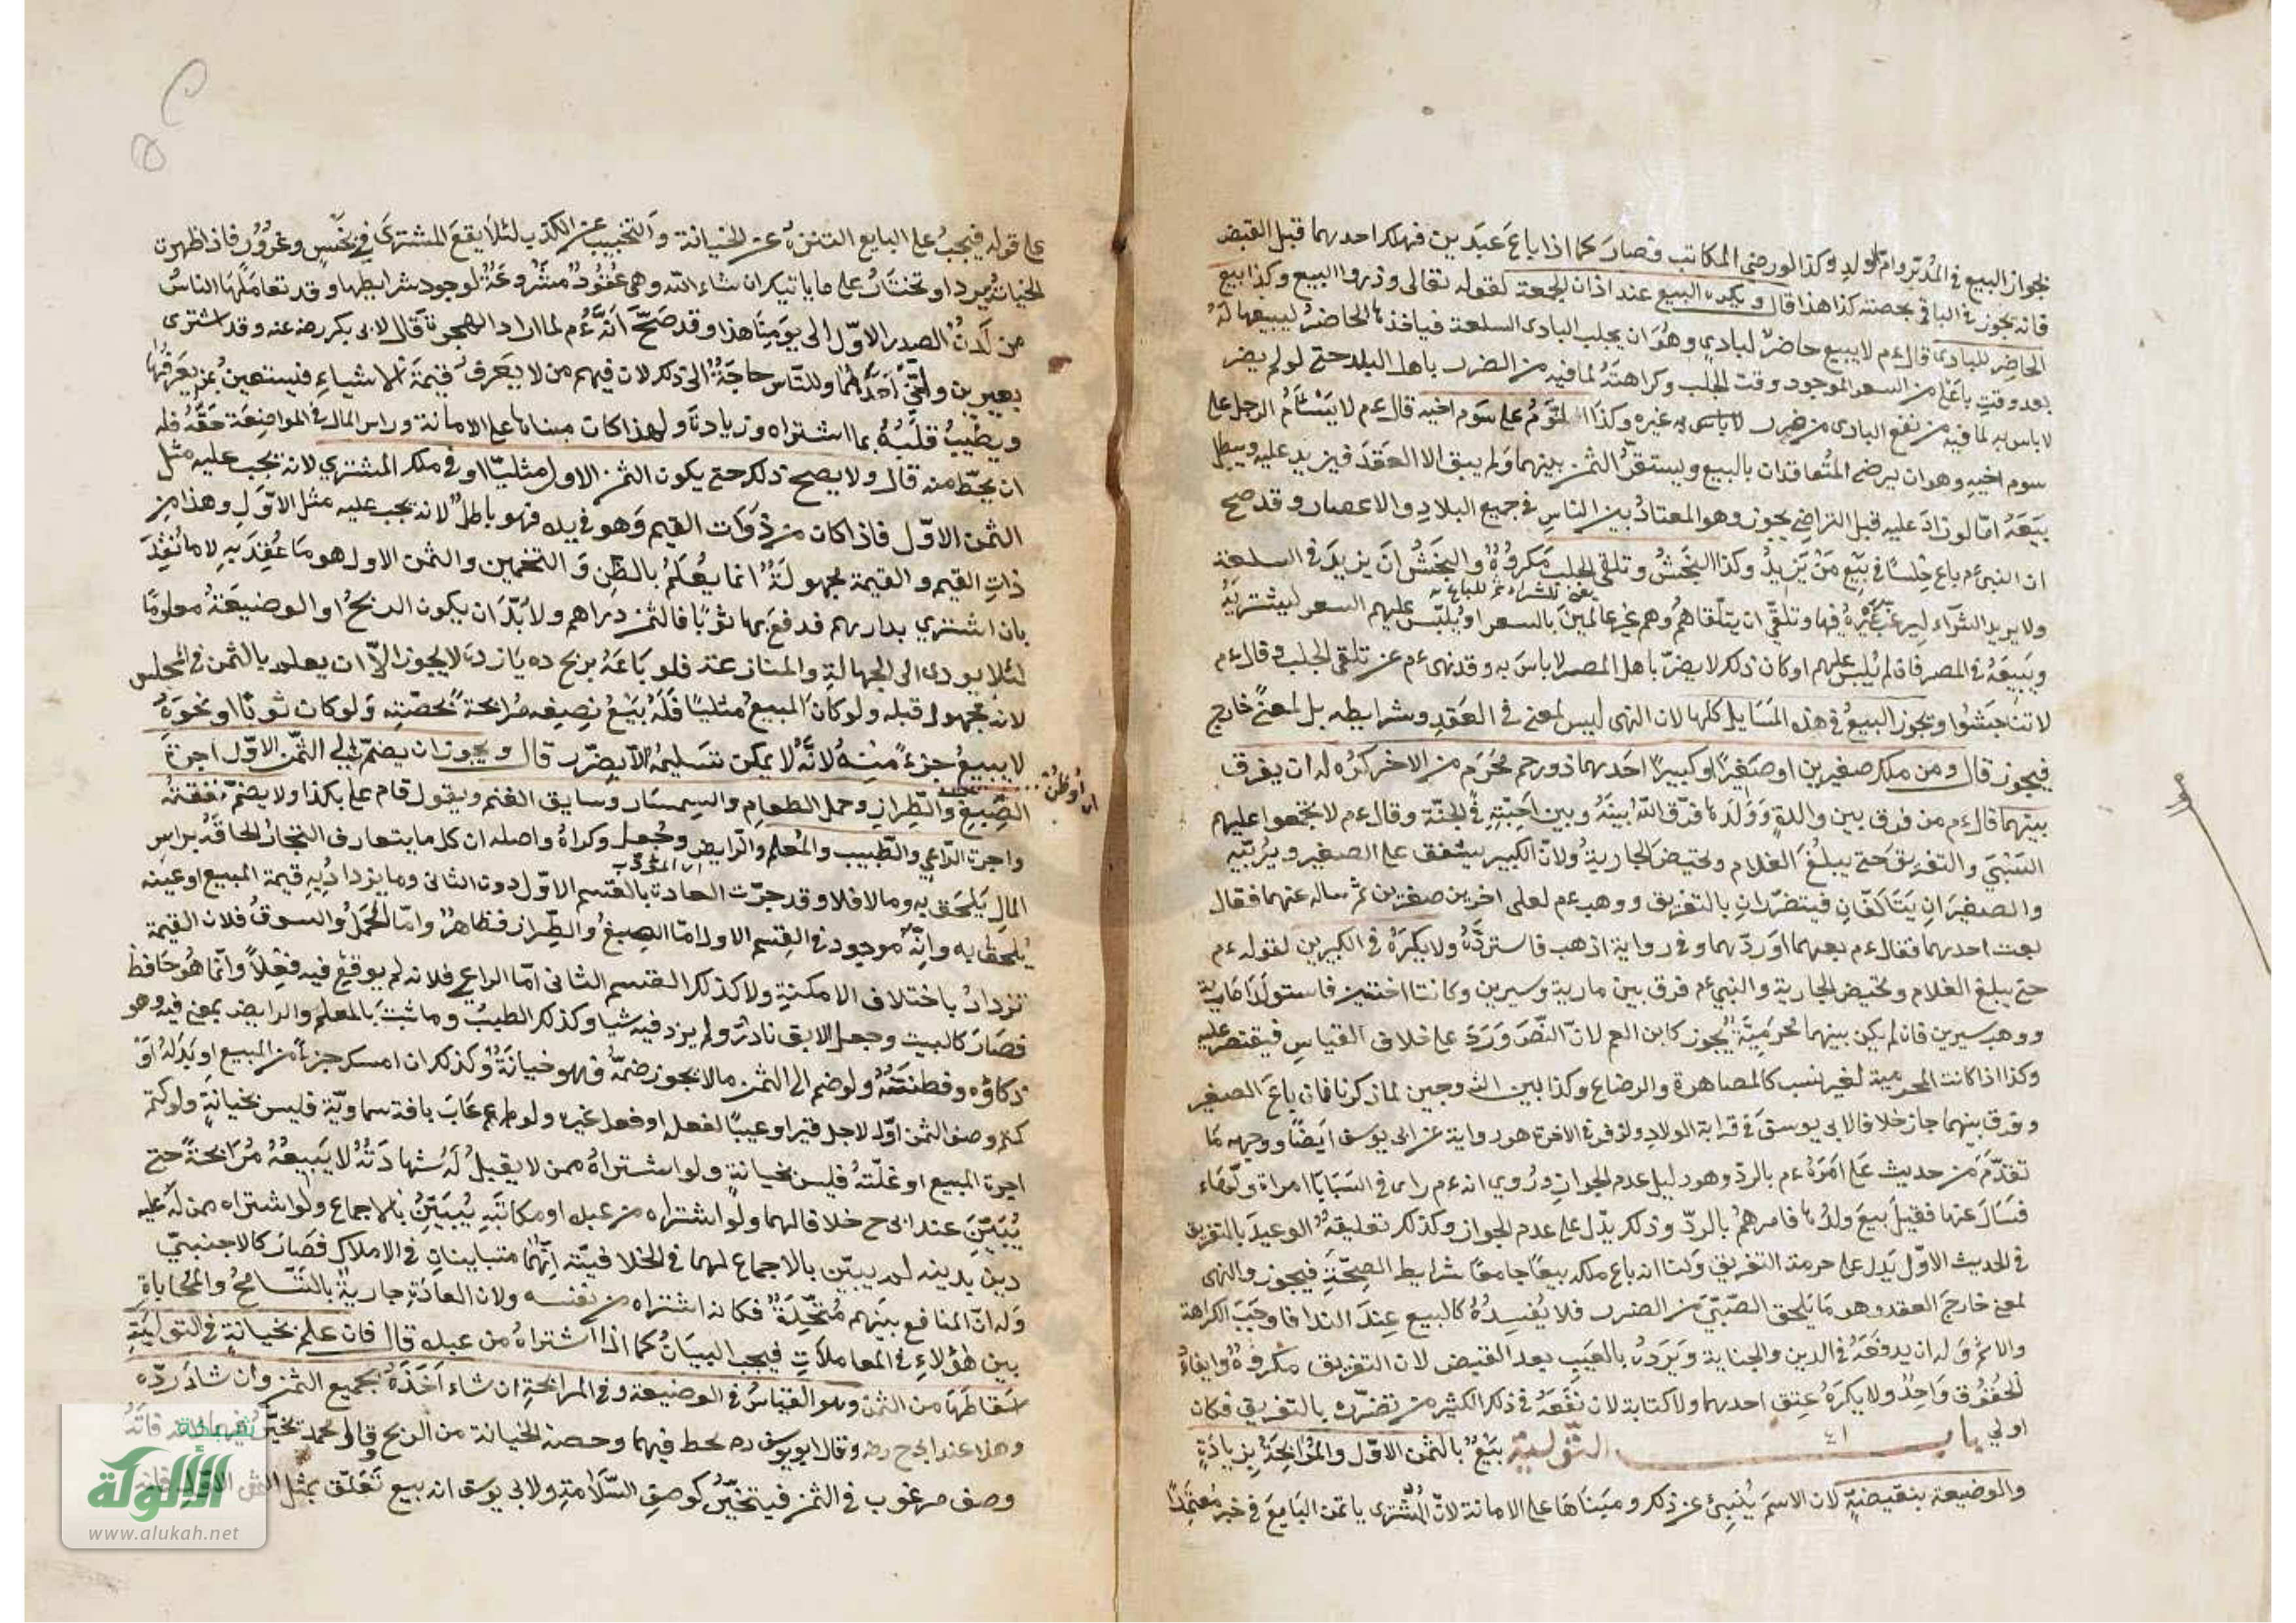 لجواز البيع في المدبر وام الولد وكذا لو رضي المكاتب فصار كما اذا باع عبدين فهلك احدهما قبل القبض
فانه يجوز في الباقي بحصته كذا هذا قال ويكره البيع عند اذان الجمعة لقوله تعالى وذروا البيع وكذا بيع
الحاضر للبادي قال ءم لا يبيع حاضر لبادي وهو ان يجلب البادي السلعة فياخذها الحاضر ليبيعها له
بعد وقت باغلى من السعر الموجود وقت الجلب وكراهته لما فيه من الضرر باهل البلد حتى لو لم يضر
لا باس به لما فيه من نفع البادي من ضرر غيره وكذا السوم على سوم اخيه قال ءم لا يستام الرجل على
سوم اخيه وهو ان يرضى المتعاقدان بالبيع ويستقر الثمن بينهما ولم يبق الا العقد فيزيد عليه ويبطل
بيعه امّا لو زاد عليه قبل التراضي يجوز وهو المعتاد بين الناس في جميع البلاد والاعصار وقد صح
ان النبي ءم باع حلسا في بيع من يزيد وكذا النجش وتلقي الجلب مكروه والنجش ان يزيد في السلعة
ولا يريد الشراء ليرغب غيره فيها وتلقي ان يتلقاهم وهم غير عالمين بالسعر او يلبّس عليهم السعر ليشتريه
ويبيعه في المصر فان لم يلبس عليهم او كان ذلك لا يضرّ باهل المصر لا باس به وقد نهى ءم عن تلقي الجلب وقال ءم
لا تناجشوا ويجوز البيع في هذه المسايل كلها لان النهي ليس لمعنى في العقد وشرايطه بل لمعنى خارج
فيجوز قال ومن ملك صغيرين او صغيرا وكبيرا احدهما ذو رحم محرم من الاخر كره له ان يفرق
بينهما قال ءم من فرق بين والدة وولدها فرّق الله بينه وبين احبّته في الجنّة وقال ءم لا يجتمعوا عليهم
السبي والتفريق حتى يبلغ الغلام وتحيض الجارية ولانّ الكبير يشفق على الصغير ويربّيه
والصغيران يتالفان فيتضرّران بالتفريق ووهب ءم لعلي اخوين صغيرين ثم ساله عنهما فقال
بعت احدهما فقال ءم بعهما او ردّهما وفي رواية اذهب فاستردّه ولا يكره في الكبيرين لقوله ءم
حتى يبلغ الغلام وتحيض الجارية والنبي ءم فرق بين مارية وسيرين وكانتا اختين فاستولد مارية
ووهب سيرين فان لم يكن بينهما محرمية يجوز كابن العم لانّ النصّ ورد على خلاف القياس فيقتصر عليه
وكذا اذا كانت المحرمية لغير نسب كالمصاهرة والرضاع وكذا بين الزوجين لما ذكرنا فان باع الصغير
وفرق بينهما جاز خلافا لابي يوسف في قرابة الولاد ولزفر في الاخرة هو رواية عن ابي يوسف ايضا ووجهه ما
تقدّم من حديث علي امره ءم بالردّ وهو دليل عدم الجواز وروي انه ءم راى في السبايا امراة ولهاء
فسال عنها فقيل بيع ولدها فامرهم بالردّ وذلك يدّل على عدم الجواز وكذلك تعليقه الوعيد بالتفريق
في الحديث الاوّل يدل على حرمة التفريق ولنا انه باع ملكه بيعا جامعا شرايط الصحّة فيجوز والنهي
لمعنى خارج العقد وهو ما يلحق الصبي من الضرر فلا يفسده كالبيع عند الندا فاوجب الكراهة
والاثم وله ان يدفعه في الدين والجناية ويردّه بالعيب بعد القبض لان التفريق مكروه وايفاء
الحقوق واجد ولا يكره عتق احدهما ولا كتابة لان نفعه في ذلك اكثير من تضرّره بالتفريق فكان
اولى باب ٤١ التّولية بيع بالثمن الاوّل والمرابحة بزيادة
والوضيعة بنقيضيةٍ لان الاسم ينبئ عن ذلك ومبناها على الامانة لانّ المشترى ياتمن البايع في خبره معتمدا
على قوله فيجب على البايع التنزه عن الخيانة والتجنب عن الكذب لئلا يقع المشترى في بخس وغرور فاذا ظهرت
الخيانة يرد او تختار على ما ياتيك ان شاء الله وهي عقود مشروعة لوجود شرايطها وقد تعاملها الناس
من لدن الصدر الاوّل الى يومنا هذا وقد صحّ انّه ءم لما اراد الهجرة قال لابي بكر رضه عنه وقد اشترى
بعيرين ولّني احدهما وللنّاس حاجة الى ذلك لان فيهم من لا يعرف قيمة الاشياء فيستعين بمن يعرفها
ويطيب قلبه بما اشتراه وزيادة ولهذا كان مبناها على الامانة وراس المال في المواضعة حقّه فله
ان يحطّ منه قال ولا يصح ذلك حتى يكون الثمن الاول مثليّا او في ملك المشتري لانه يجب عليه مثل
الثمن الاوّل فاذا كان من ذوات القيم وهو في يده فهو باطل لانه يجب عليه مثل الاوّل وهذا من
ذات القيم والقيمة مجهولة انما يعلم بالظن والتخمين والثمن الاول هو ما عقد به لا ما نقد
بان اشتري بدارهم فدفع بها ثوبا فالثمن دراهم ولا بدّ ان يكون الربح او الوضيعة معلوما
لئلا يودي الى الجهالة والمنازعة فلو باعه بربح ده يازده لا يجوز الاّ ان يعلم بالثمن في المجلس
لانه مجهول قبله ولو كان المبيع مثليا فله بيع نصيفه مرابحة بحصّته ولو كان ثوبا او نحوه
لا يبيع جزء منه لانّه لا يمكن تسليمه الاّ بضرر قال ويجوز ان يضمّ الى الثمن الاوّل اجرة
الصبغ والطراز وحمل الطعام والسمسار وسايق الغنم ويقول قام علي بكذا ولا يضمّ نفقته
واجرة الرّاعي والطبيب والمعلم والرّايض وجعل وكراه واصله ان كل ما يتعارف التجار الحاقه براس
المال يلحق به وما لا فلا وقد جرت العادة بالقسم الاوّل دون الثاني وما يزداد به قيمة المبيع او عينه
يلحق به وانّه موجود في القسم الاول امّا الصبغ والطّراز فظاهر وامّا الحمل والسوق فلان القيمة
تزداد باختلاف الامكنة ولا كذلك القسم الثاني امّا الراعي فلانه لم يوقع فيه فعلا وانّما هو حافظ
فصار كالبيت وجعل الابق نادر ولم يزد فيه شيا وكذلك الطبيب وما ثبت بالمعلم والرايض بمعنى فيه وهو
ذكاؤه وفطنته ولو ضم الى الثمن ما لا يجوز ضمّه فهو خيانة وكذلك ان امسك جزءا من المبيع او بدله او
كتم وصف الثمن اوّله لاجل فقير او عيبا لفعله او فعل غيره ولو عاب بافة سماويّة فليس بخيانة ولو كتم
اجرة المبيع او غلّته فليس بخيانة ولو اشتراه ممن لا يقبل له شهادته لا يبيعه مرابحة حتى
يبيّن عند ابي ح خلافا لهما ولو اشتراه من عبده او مكاتبه يبيّن بالاجماع ولو اشتراه ممن له عليه
دين بدينه لم يبيّن بالاجماع لهما في الخلافيّة انّهما متباينان في الاملاك فصار كالاجنبيّ
وله انّ المنافع بينهم متّحدة فكانه اشتراه من نفسه ولان العادة جارية بالتّسامح والمحاباة
بين هؤلاء في المعاملات فيجب البيان كما اذا اشتراه من عبده قال فان علم بخيانة في التولية
اسقاطها من الثمن وهو القياس في الوضيعة وفي المرابحة ان شاء اخذه بجميع الثمن وان شاء ردّه
وهذا عند ابي ح رضه وقال ابو يوسف ره يحط فيهما وحصة الخيانة من الربح وقال محمد يخيّر فيهما
وصف مرغوب في الثمن فيتخيّر كوصف السّلامة ولابي يوسف انه بيع تعلّق بمثل الثمن الاوّل
شبكة
الألوكة
www.alukah.net